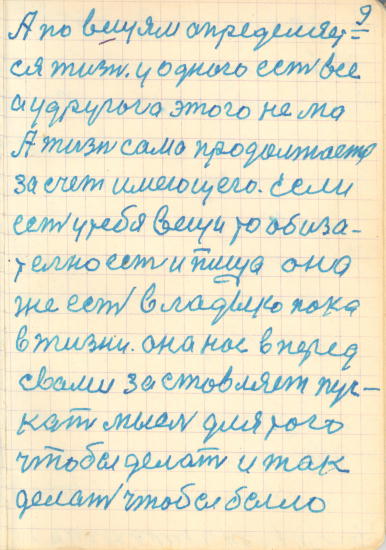 9
А по вещям определяет-
ся жизн. у одного ест все
а у другога этого не ма
А жизн сама продолжается
за счет имеющего. Если
ест у тебя вещи то обиза-
телно ест и пища она
же ест владыко пока
в жизни. она нас вперед
свами заставляет пус-
кат мысл для того
чтобы делат и так
делат чтобы было